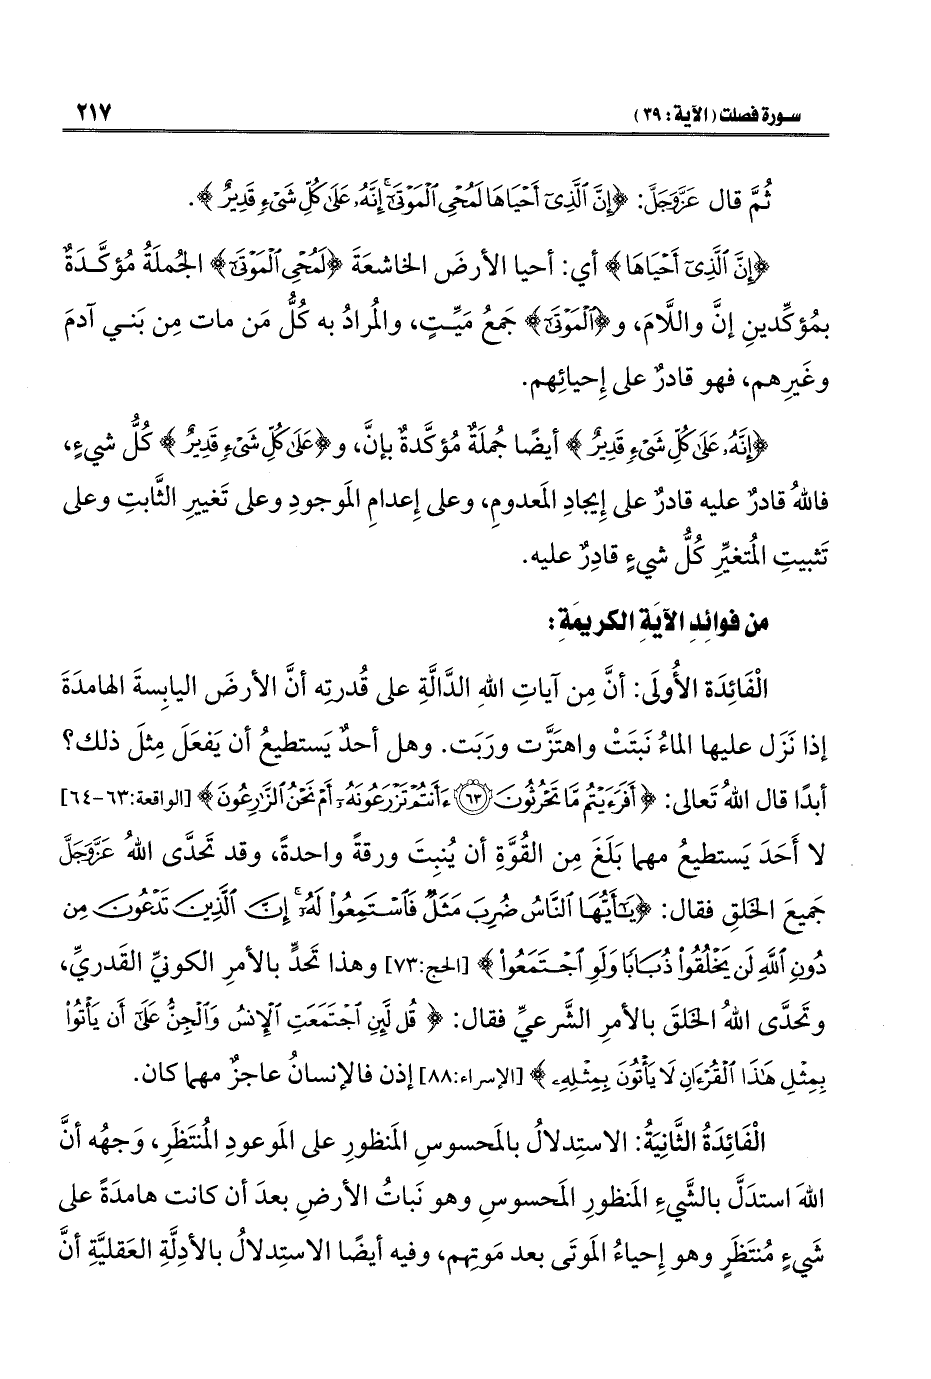 سورة فصلت (الآية: ٣٩) ٢١٧
ثُمَّ قال عَزَّوَجَلَّ: ﴿إِنَّ ٱلَّذِىٓ أَحْيَاهَا لَمُحْىِ ٱلْمَوْتَىٰٓ ۚ إِنَّهُۥ عَلَىٰ كُلِّ شَىْءٍ قَدِيرٌ﴾.
﴿إِنَّ ٱلَّذِىٓ أَحْيَاهَا﴾ أي: أحيا الأرضَ الخاشعَةَ ﴿لَمُحْىِ ٱلْمَوْتَىٰٓ﴾ الجُملَةُ مُؤكَّدَةٌ
بمُؤكِّدينِ إنَّ واللَّامَ، و﴿ٱلْمَوْتَىٰٓ﴾ جَمعُ مَيِّتٍ، والمُرادُ به كُلُّ مَن مات مِن بَني آدمَ
وغَيرِهم، فهو قادرٌ على إحيائِهم.
﴿إِنَّهُۥ عَلَىٰ كُلِّ شَىْءٍ قَدِيرٌ﴾ أيضًا جُملَةٌ مُؤكَّدةٌ بإنَّ، و﴿عَلَىٰ كُلِّ شَىْءٍ قَدِيرٌ﴾ كُلُّ شيءٍ،
فاللهُ قادرٌ عليه قادرٌ على إيجادِ المَعدومِ، وعلى إعدامِ المَوجودِ وعلى تَغييرِ الثَّابتِ وعلى
تَثبيتِ المُتغيِّرِ كُلُّ شيءٍ قادِرٌ عليه.
من فوائدِ الآيَةِ الكريمَةِ:
الْفَائِدَة الأُولَى: أنَّ مِن آياتِ اللهِ الدَّالَّةِ على قُدرتِه أنَّ الأرضَ اليابِسةَ الهامدَةَ
إذا نَزَل عليها الماءُ نَبتَتْ واهتَزَّت ورَبَت. وهل أحدٌ يَستطيعُ أن يَفعَلَ مِثلَ ذلك؟
أبدًا قال اللهُ تَعالى: ﴿أَفَرَءَيْتُم مَّا تَحْرُثُونَ ٦٣ ءَأَنتُمْ تَزْرَعُونَهُۥٓ أَمْ نَحْنُ ٱلزَّٰرِعُونَ﴾ [الواقعة:٦٣-٦٤]
لا أَحَدَ يَستطيعُ مهما بَلَغَ مِن القُوَّةِ أن يُنبِتَ ورقةً واحدةً، وقد تَحدَّى اللهُ عَزَّوَجَلَّ
جَميعَ الخَلقِ فقال: ﴿يَٰٓأَيُّهَا ٱلنَّاسُ ضُرِبَ مَثَلٌ فَٱسْتَمِعُوا۟ لَهُۥٓ ۚ إِنَّ ٱلَّذِينَ تَدْعُونَ مِن
دُونِ ٱللَّهِ لَن يَخْلُقُوا۟ ذُبَابًا وَلَوِ ٱجْتَمَعُوا۟﴾ [الحج:٧٣] وهذا تَحدٍّ بالأمرِ الكونيِّ القَدريِّ،
وتَحدَّى اللهُ الخَلقَ بالأمرِ الشَّرعيِّ فقال: ﴿قُل لَّئِنِ ٱجْتَمَعَتِ ٱلْإِنسُ وَٱلْجِنُّ عَلَىٰٓ أَن يَأْتُوا۟
بِمِثْلِ هَٰذَا ٱلْقُرْءَانِ لَا يَأْتُونَ بِمِثْلِهِۦ﴾ [الإسراء:٨٨] إذن فالإنسانُ عاجزٌ مهما كان.
الْفَائِدَةُ الثَّانِيَةُ: الاستدلالُ بالمَحسوسِ المَنظورِ على المَوعودِ المُنتَظَرِ، وَجهُه أنَّ
اللهَ استدَلَّ بالشَّيءِ المَنظورِ المَحسوسِ وهو نَباتُ الأرضِ بعدَ أن كانت هامدَةً على
شَيءٍ مُنتَظَرٍ وهو إحياءُ المَوتَى بعد مَوتِهم، وفيه أيضًا الاستِدلالُ بالأدِلَّةِ العَقليَّةِ أنَّ